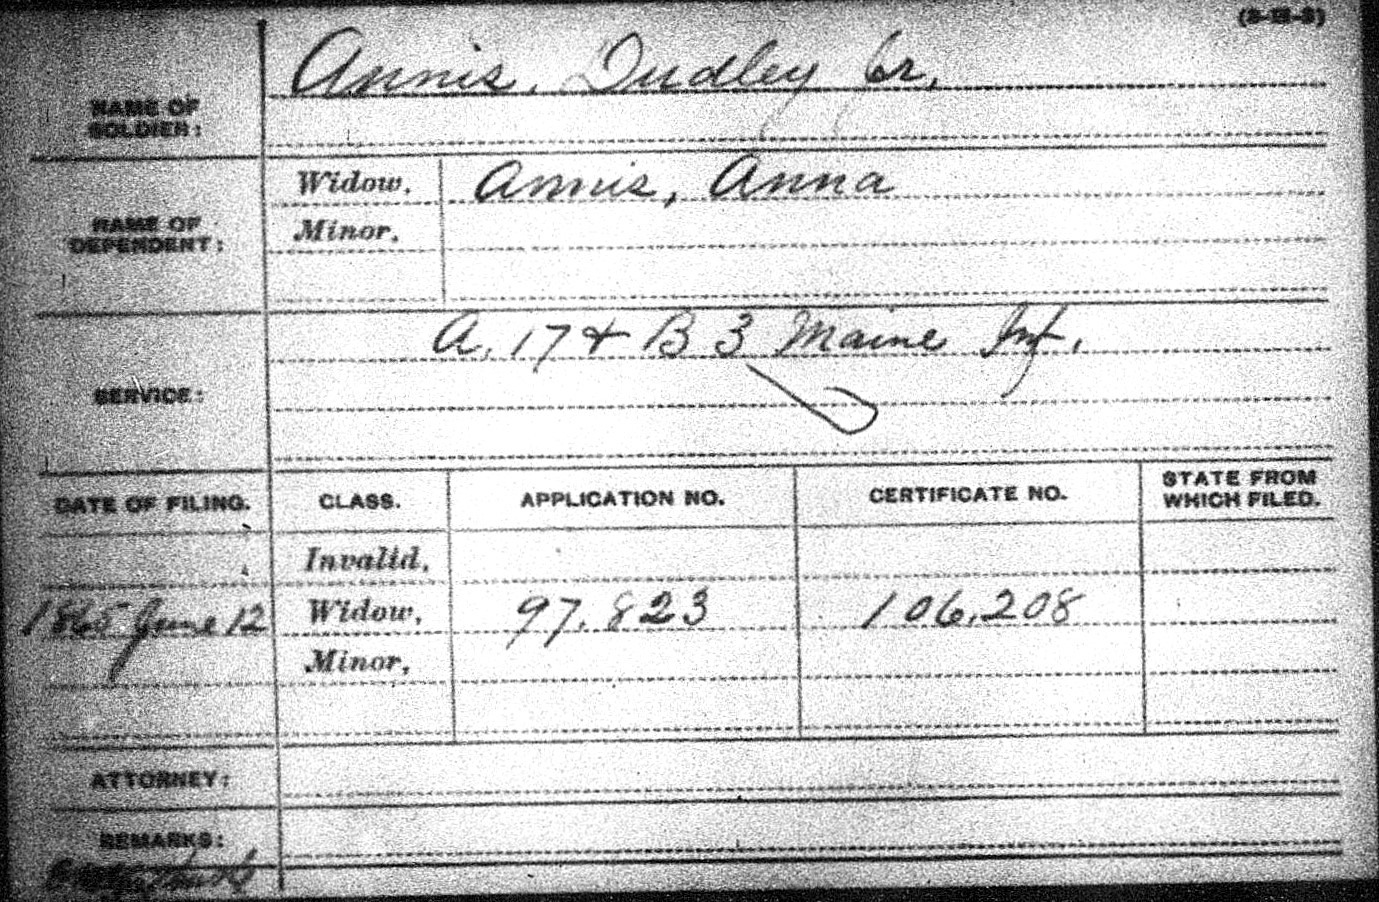 Annis, Dudley Jr.
NAME OF
SOLDIER:
Widow, Annis, Anna
Minor,
NAME OF
DEPENDENT:
A. 17 & B 3 Maine Inf.
SERVICE:
DATE OF FILING. CLASS. APPLICATION NO. CERTIFICATE NO. STATE FROM WHICH FILED.
Invalid,
1865 June 12 Widow, 97.823 106.208
Minor,
ATTORNEY:
REMARKS: